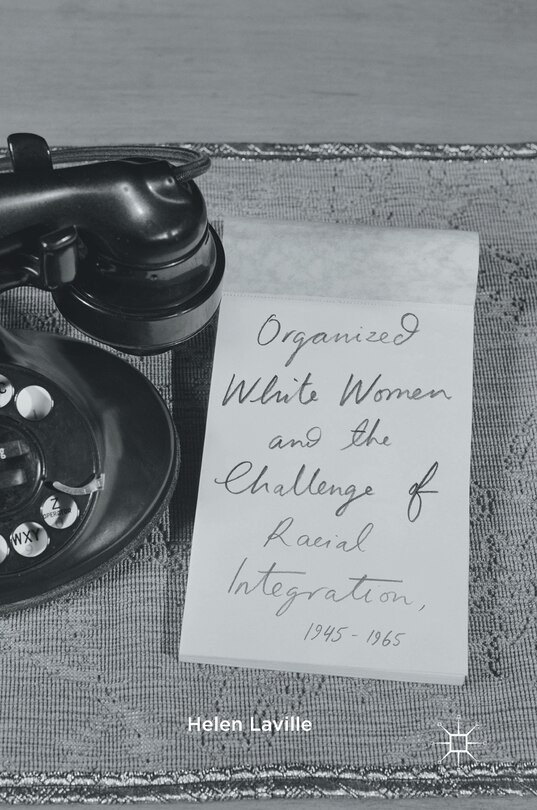 Z
OPERATOR
WXY
9
Organized
White Women
and the
Challenge of
Racial
Integration,
1945 - 1965
Helen Laville